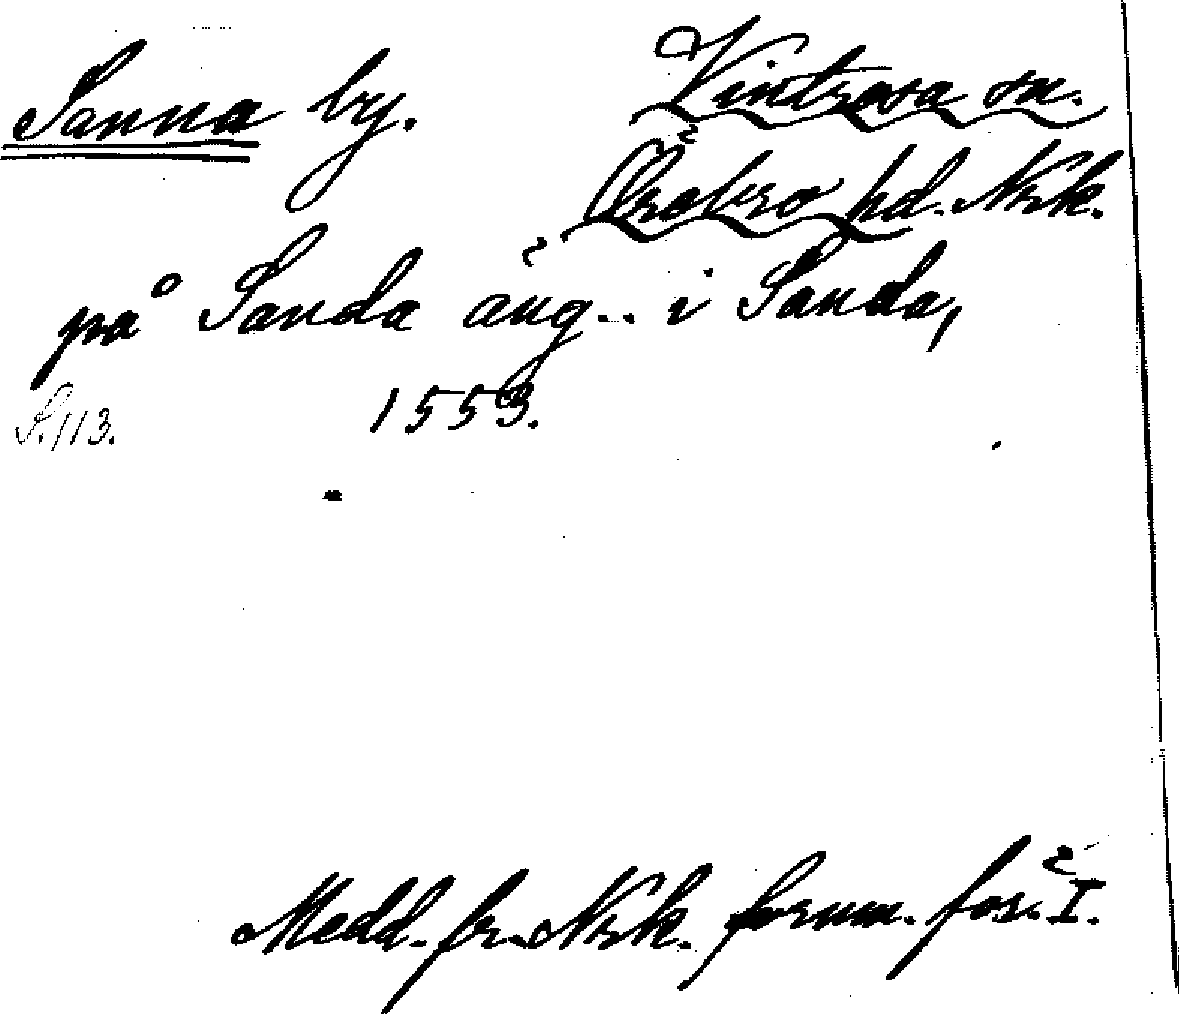 Sanna by. Vintrosa sn.
Örebro hd. Nrk.
på Sanda äng... i Sanda,
S. 113. 1553.
Medd. fr. Nrk. fornm. för. I.